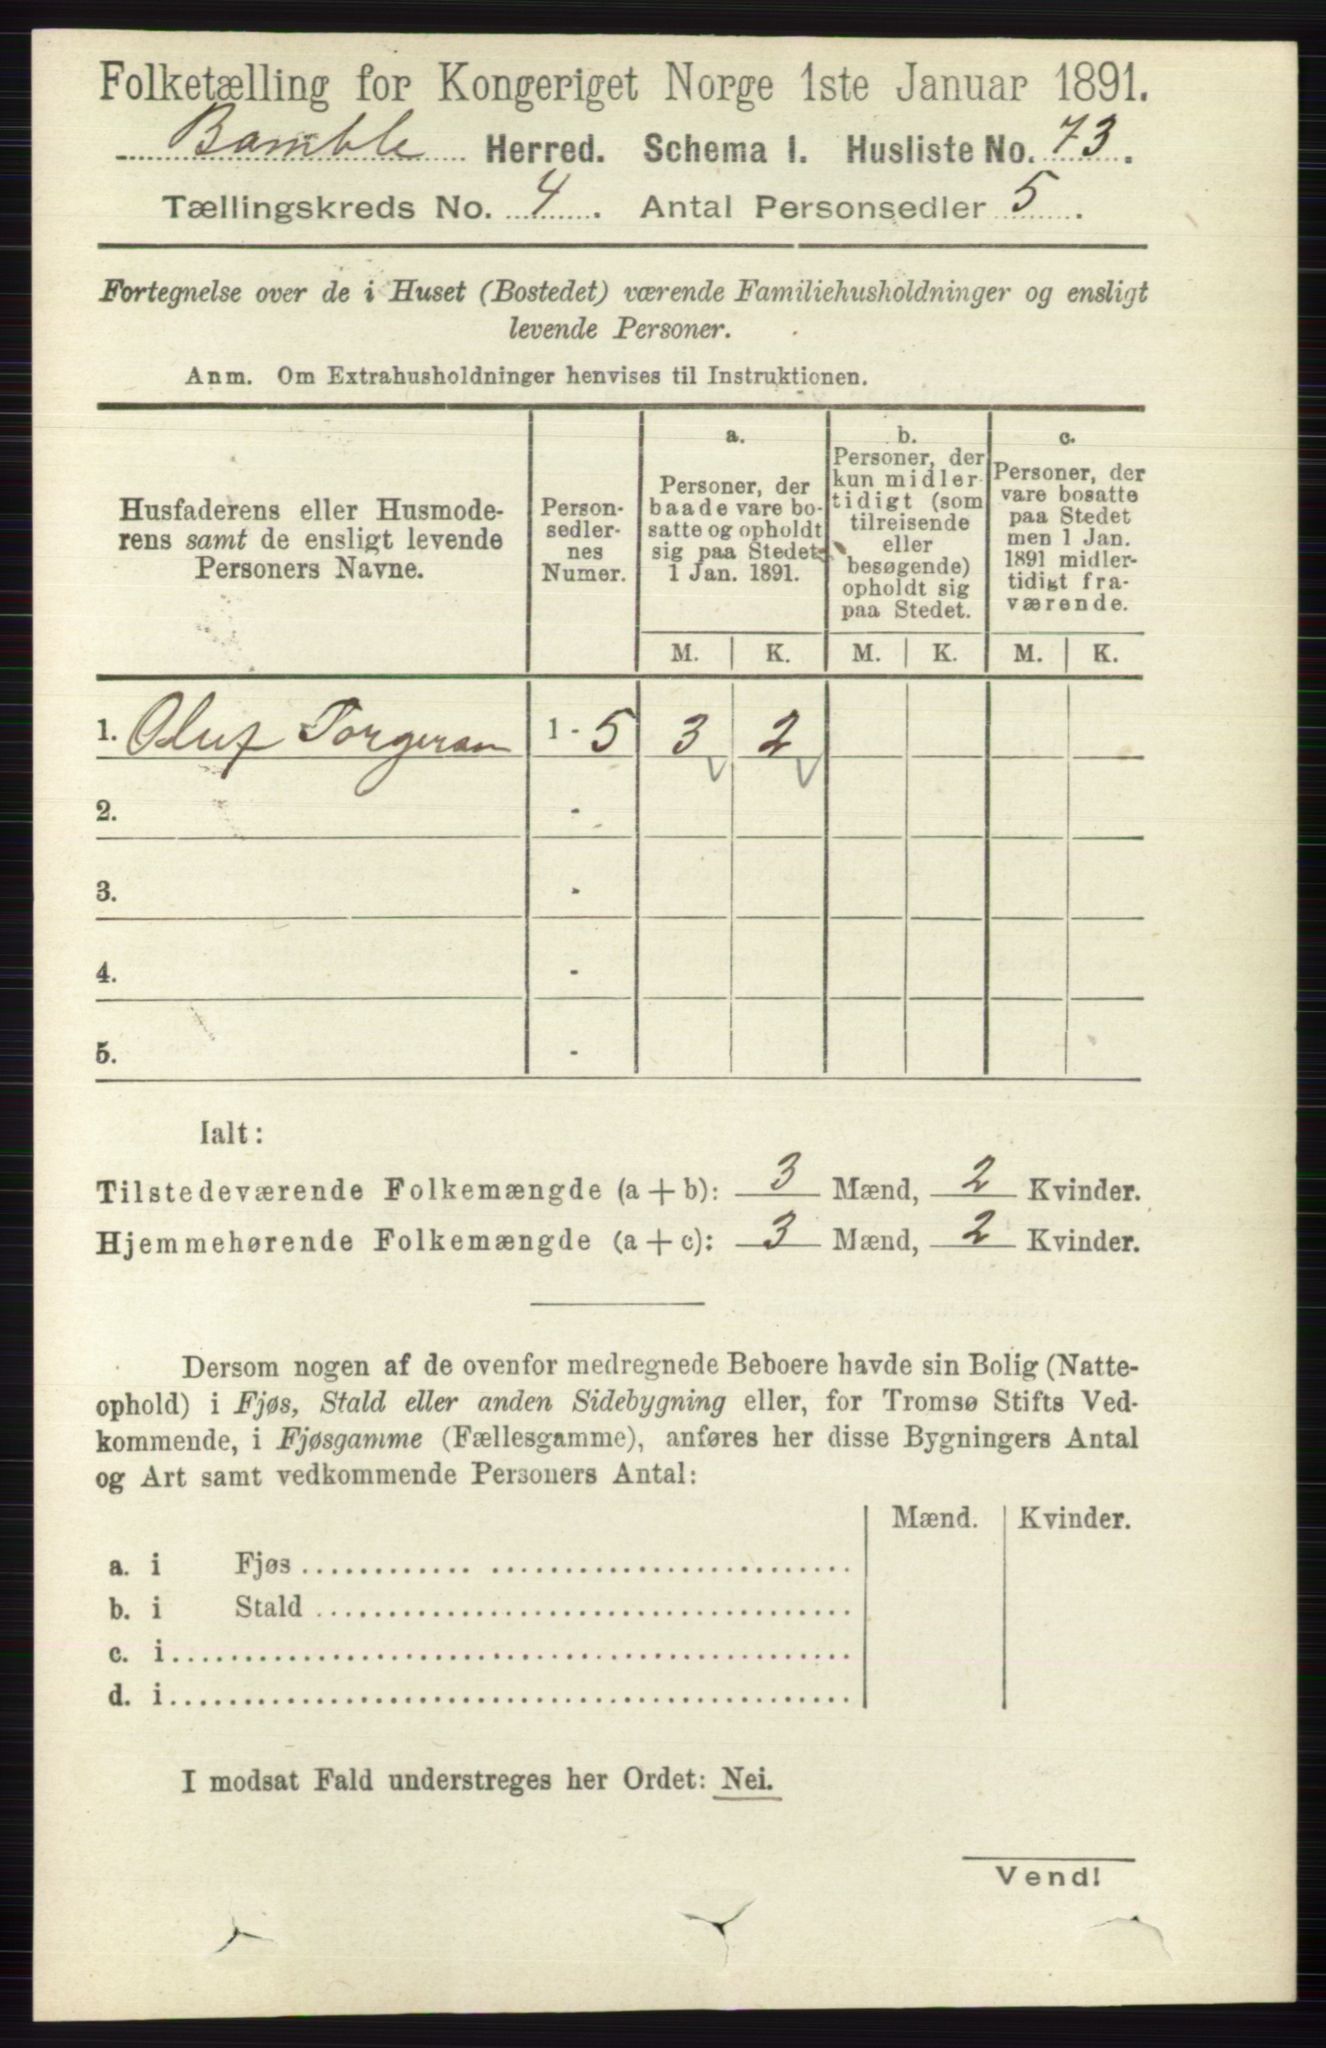 Folketælling for Kongeriget Norge 1ste Januar 1891.
Bamble Herred. Schema I. Husliste No. 73.
Tællingskreds No. 4. Antal Personsedler 5.
Fortegnelse over de i Huset (Bostedet) værende Familiehusholdninger og ensligt
levende Personer.
Anm. Om Extrahusholdninger henvises til Instruktionen.
Husfaderens eller Husmode-
rens samt de ensligt levende
Personers Navne.
Person-
sedler-
nes
Numer.
a.
Personer, der
baade vare bo-
satte og opholdt
sig paa Stedet
1 Jan. 1891.
b.
Personer, der
kun midler-
tidigt (som
tilreisende
eller
besøgende)
opholdt sig
paa Stedet.
c.
Personer, der
vare bosatte
paa Stedet
men 1 Jan.
1891 midler-
tidigt fra-
værende.
M. K. M. K. M. K.
1. Oluf Torgersen 1 - 5 3 2
2. -
3. -
4. -
5. -
Ialt:
Tilstedeværende Folkemængde (a + b): 3 Mænd, 2 Kvinder.
Hjemmehørende Folkemængde (a + c): 3 Mænd, 2 Kvinder.
Dersom nogen af de ovenfor medregnede Beboere havde sin Bolig (Natte-
ophold) i Fjøs, Stald eller anden Sidebygning eller, for Tromsø Stifts Ved-
kommende, i Fjøsgamme (Fællesgamme), anføres her disse Bygningers Antal
og Art samt vedkommende Personers Antal:
Mænd. Kvinder.
a. i Fjøs
b. i Stald
c. i
d. i
I modsat Fald understreges her Ordet: Nei.
Vend!